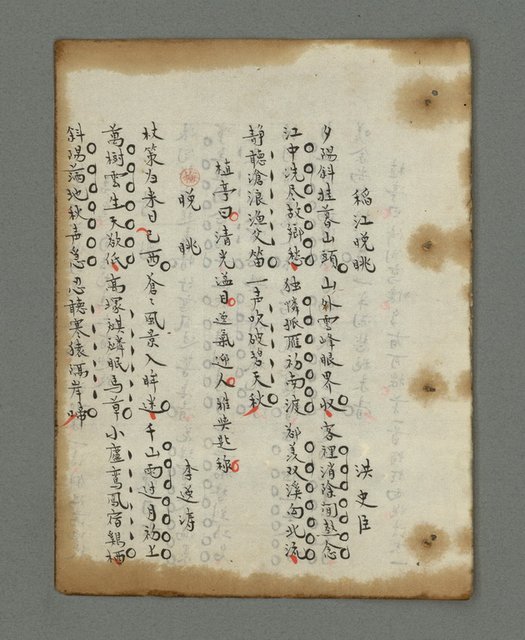 稻江晚眺
洪史臣
夕陽斜掛暮山頭山外雲峰眼界收客裡消除閒愁念
江中洗尽故鄉愁独憐孤雁初南渡都羨双溪向北流
靜聽滄浪漁父笛一声吹破碧天秋
植亭曰清光溢目逸氣迎人雅與題稱
晚眺
李逸濤
杖策归来日已西蒼々風景入眸迷千山雨过月初上
萬樹雲生天欲低高塚麒麟眠馬草小廬鸞鳳宿鷄栖
斜陽滿地秋声急忍聽寒猿隔岸啼